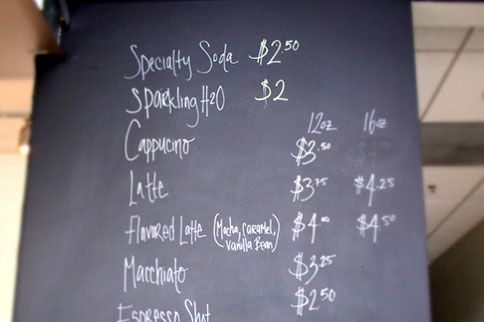 Specialty Soda $2.50
Sparkling H2O $2
12oz 16oz
Cappucino $3.50
Latte $3.75 $4.25
Flavored Latte (Mocha, Caramel, $4.00 $4.50
Vanilla Bean)
Macchiato $3.25
Espresso Shot $2.50